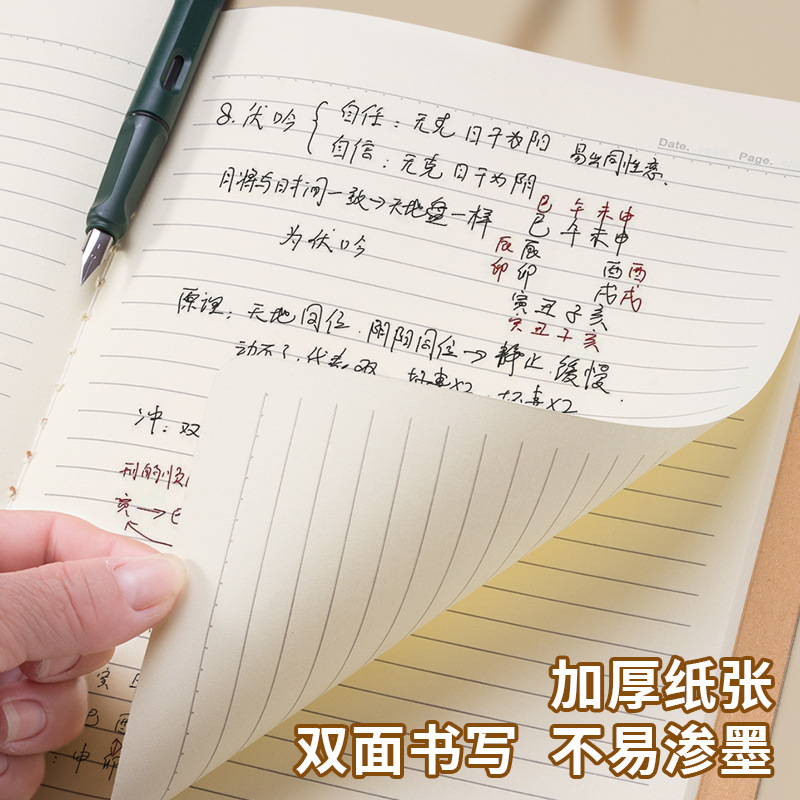 Date. Page.
8. 伏吟 { 自任：元克 日干为阳 易出同性恋.
自信：元克 日干为阴
月将与时间一致→天地盘一样
为伏吟
巳 午 未 申
巳 午 未 申
辰 辰 酉 酉
卯 卯 戌 戌
寅 丑 子 亥
寅 丑 子 亥
原理：天地同位.阴阳同位→静止.缓慢.
动不了.代表双
冲：双
刑的顺
亥→巳
寅
巳 酉
申
加厚纸张
双面书写 不易渗墨